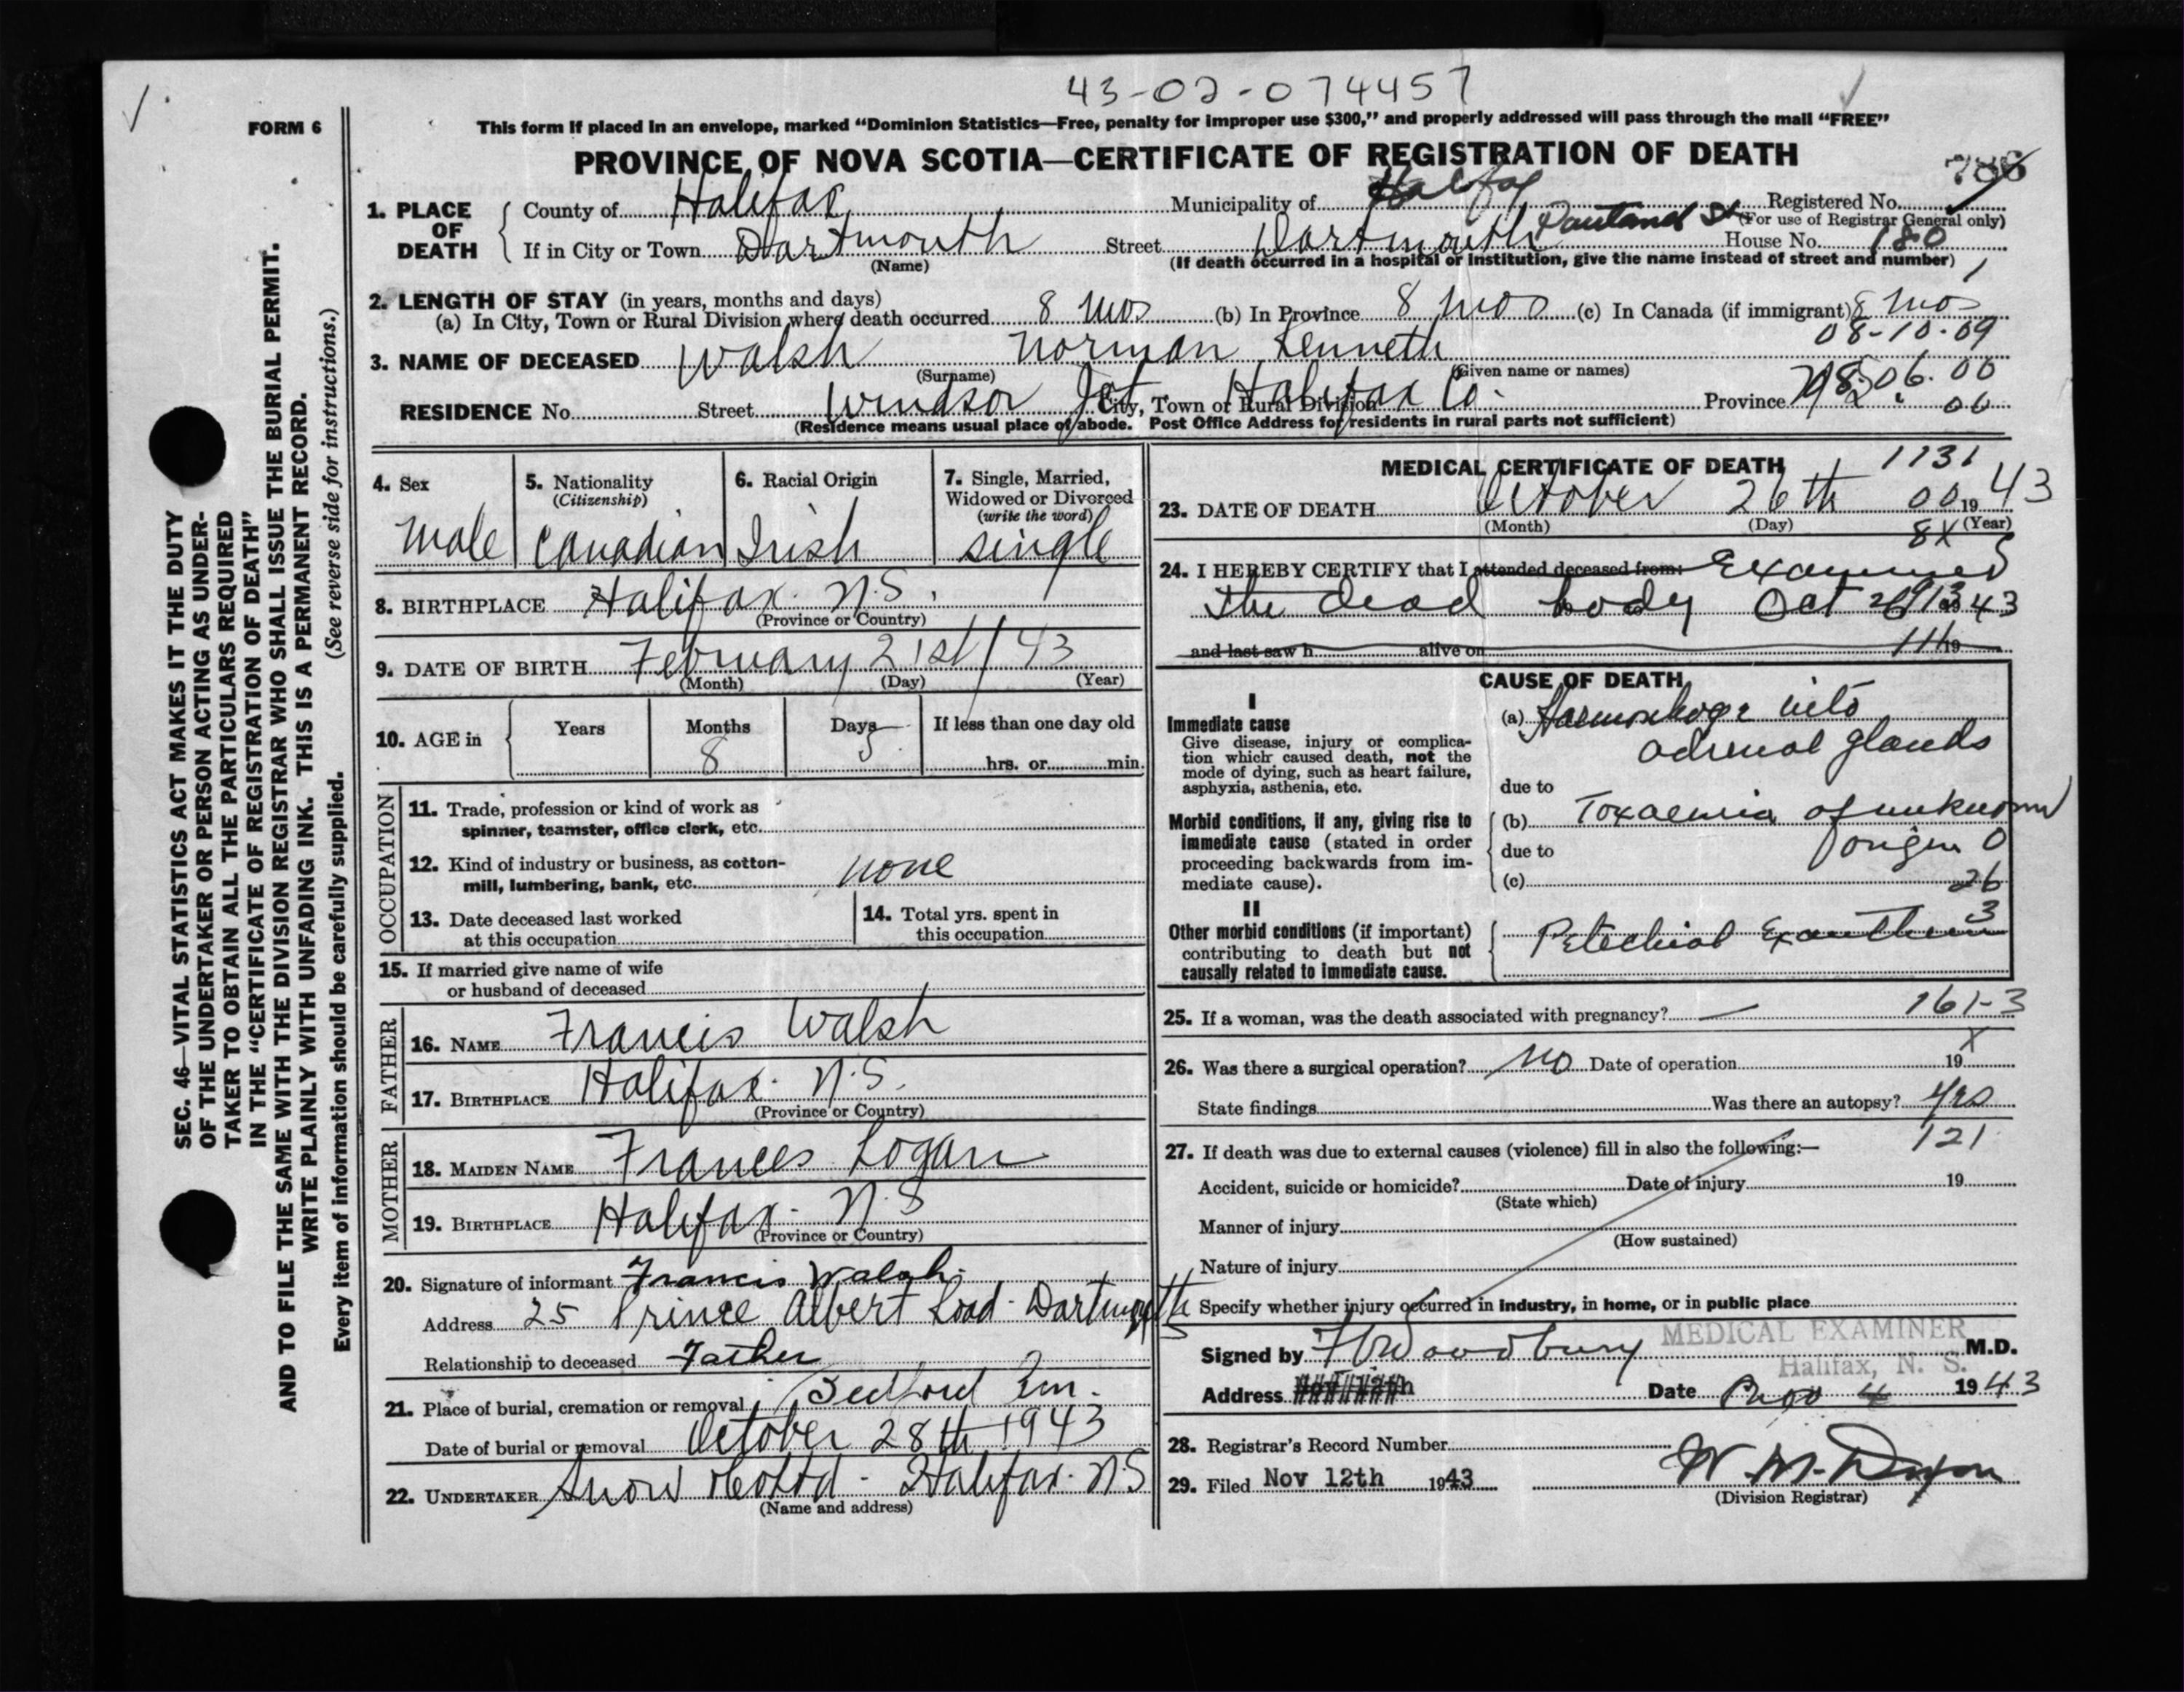 43-02-074457
FORM 6
This form if placed in an envelope, marked “Dominion Statistics—Free, penalty for improper use $300,” and properly addressed will pass through the mail “FREE”
PROVINCE OF NOVA SCOTIA—CERTIFICATE OF REGISTRATION OF DEATH
1. PLACE OF DEATH
County of Halifax Municipality of Halifax Registered No.
(For use of Registrar General only)
If in City or Town Dartmouth Street Dartmouth St House No. 180
(Name) (If death occurred in a hospital or institution, give the name instead of street and number)
2. LENGTH OF STAY (in years, months and days)
(a) In City, Town or Rural Division where death occurred 8 mos (b) In Province 8 mos (c) In Canada (if immigrant) 8 mos
08-10-09
3. NAME OF DECEASED Walsh Norman Kenneth
(Surname) (Given name or names)
06.00
RESIDENCE No. Street Windsor Jct. City, Town or Rural Division Halifax Co. Province
(Residence means usual place of abode. Post Office Address for residents in rural parts not sufficient)
SEC. 46—VITAL STATISTICS ACT MAKES IT THE DUTY
OF THE UNDERTAKER OR PERSON ACTING AS UNDER-
TAKER TO OBTAIN ALL THE PARTICULARS REQUIRED
IN THE “CERTIFICATE OF REGISTRATION OF DEATH”
AND TO FILE THE SAME WITH THE DIVISION REGISTRAR WHO SHALL ISSUE THE BURIAL PERMIT.
WRITE PLAINLY WITH UNFADING INK. THIS IS A PERMANENT RECORD.
Every item of information should be carefully supplied. (See reverse side for instructions.)
4. Sex 5. Nationality (Citizenship) 6. Racial Origin 7. Single, Married, Widowed or Divorced (write the word)
Male Canadian Irish single
8. BIRTHPLACE Halifax N.S.
(Province or Country)
9. DATE OF BIRTH February 21st / 43
(Month) (Day) (Year)
10. AGE in Years Months Days If less than one day old
8 5 hrs. or min.
OCCUPATION
11. Trade, profession or kind of work as
spinner, teamster, office clerk, etc.
12. Kind of industry or business, as cotton-
mill, lumbering, bank, etc. none
13. Date deceased last worked
at this occupation
14. Total yrs. spent in
this occupation
15. If married give name of wife
or husband of deceased
FATHER
16. NAME Francis Walsh
17. BIRTHPLACE Halifax N.S.
(Province or Country)
MOTHER
18. MAIDEN NAME Frances Logan
19. BIRTHPLACE Halifax N.S
(Province or Country)
20. Signature of informant Francis Walsh
Address 25 Prince Albert Road - Dartmouth
Relationship to deceased Father
21. Place of burial, cremation or removal Bedford
Date of burial or removal October 28th 1943
22. UNDERTAKER Snow & Co Ltd - Halifax N.S
(Name and address)
MEDICAL CERTIFICATE OF DEATH
1131
23. DATE OF DEATH October 26th 00 1943
(Month) (Day) (Year)
8X
24. I HEREBY CERTIFY that I attended deceased from: Examined
the dead body Oct 43
and last saw h alive on 19
CAUSE OF DEATH
I
Immediate cause
Give disease, injury or complica-
tion which caused death, not the
mode of dying, such as heart failure,
asphyxia, asthenia, etc.
(a) Haemorrhage into
adrenal glands
due to
Morbid conditions, if any, giving rise to
immediate cause (stated in order
proceeding backwards from im-
mediate cause).
(b) Toxaemia of unknown
due to origin 0
(c) 26
II
3
Other morbid conditions (if important)
contributing to death but not
causally related to immediate cause.
Petechial Exanthem
25. If a woman, was the death associated with pregnancy? — 161-3
26. Was there a surgical operation? No Date of operation 19 X
State findings Was there an autopsy? Yes
121
27. If death was due to external causes (violence) fill in also the following:—
Accident, suicide or homicide? Date of injury 19
(State which)
Manner of injury
(How sustained)
Nature of injury
Specify whether injury occurred in industry, in home, or in public place
MEDICAL EXAMINER
Signed by Woodbury M.D.
Halifax, N. S.
Address Date Nov 4 1943
28. Registrar's Record Number
29. Filed Nov 12th 1943 W. M. Dixon
(Division Registrar)